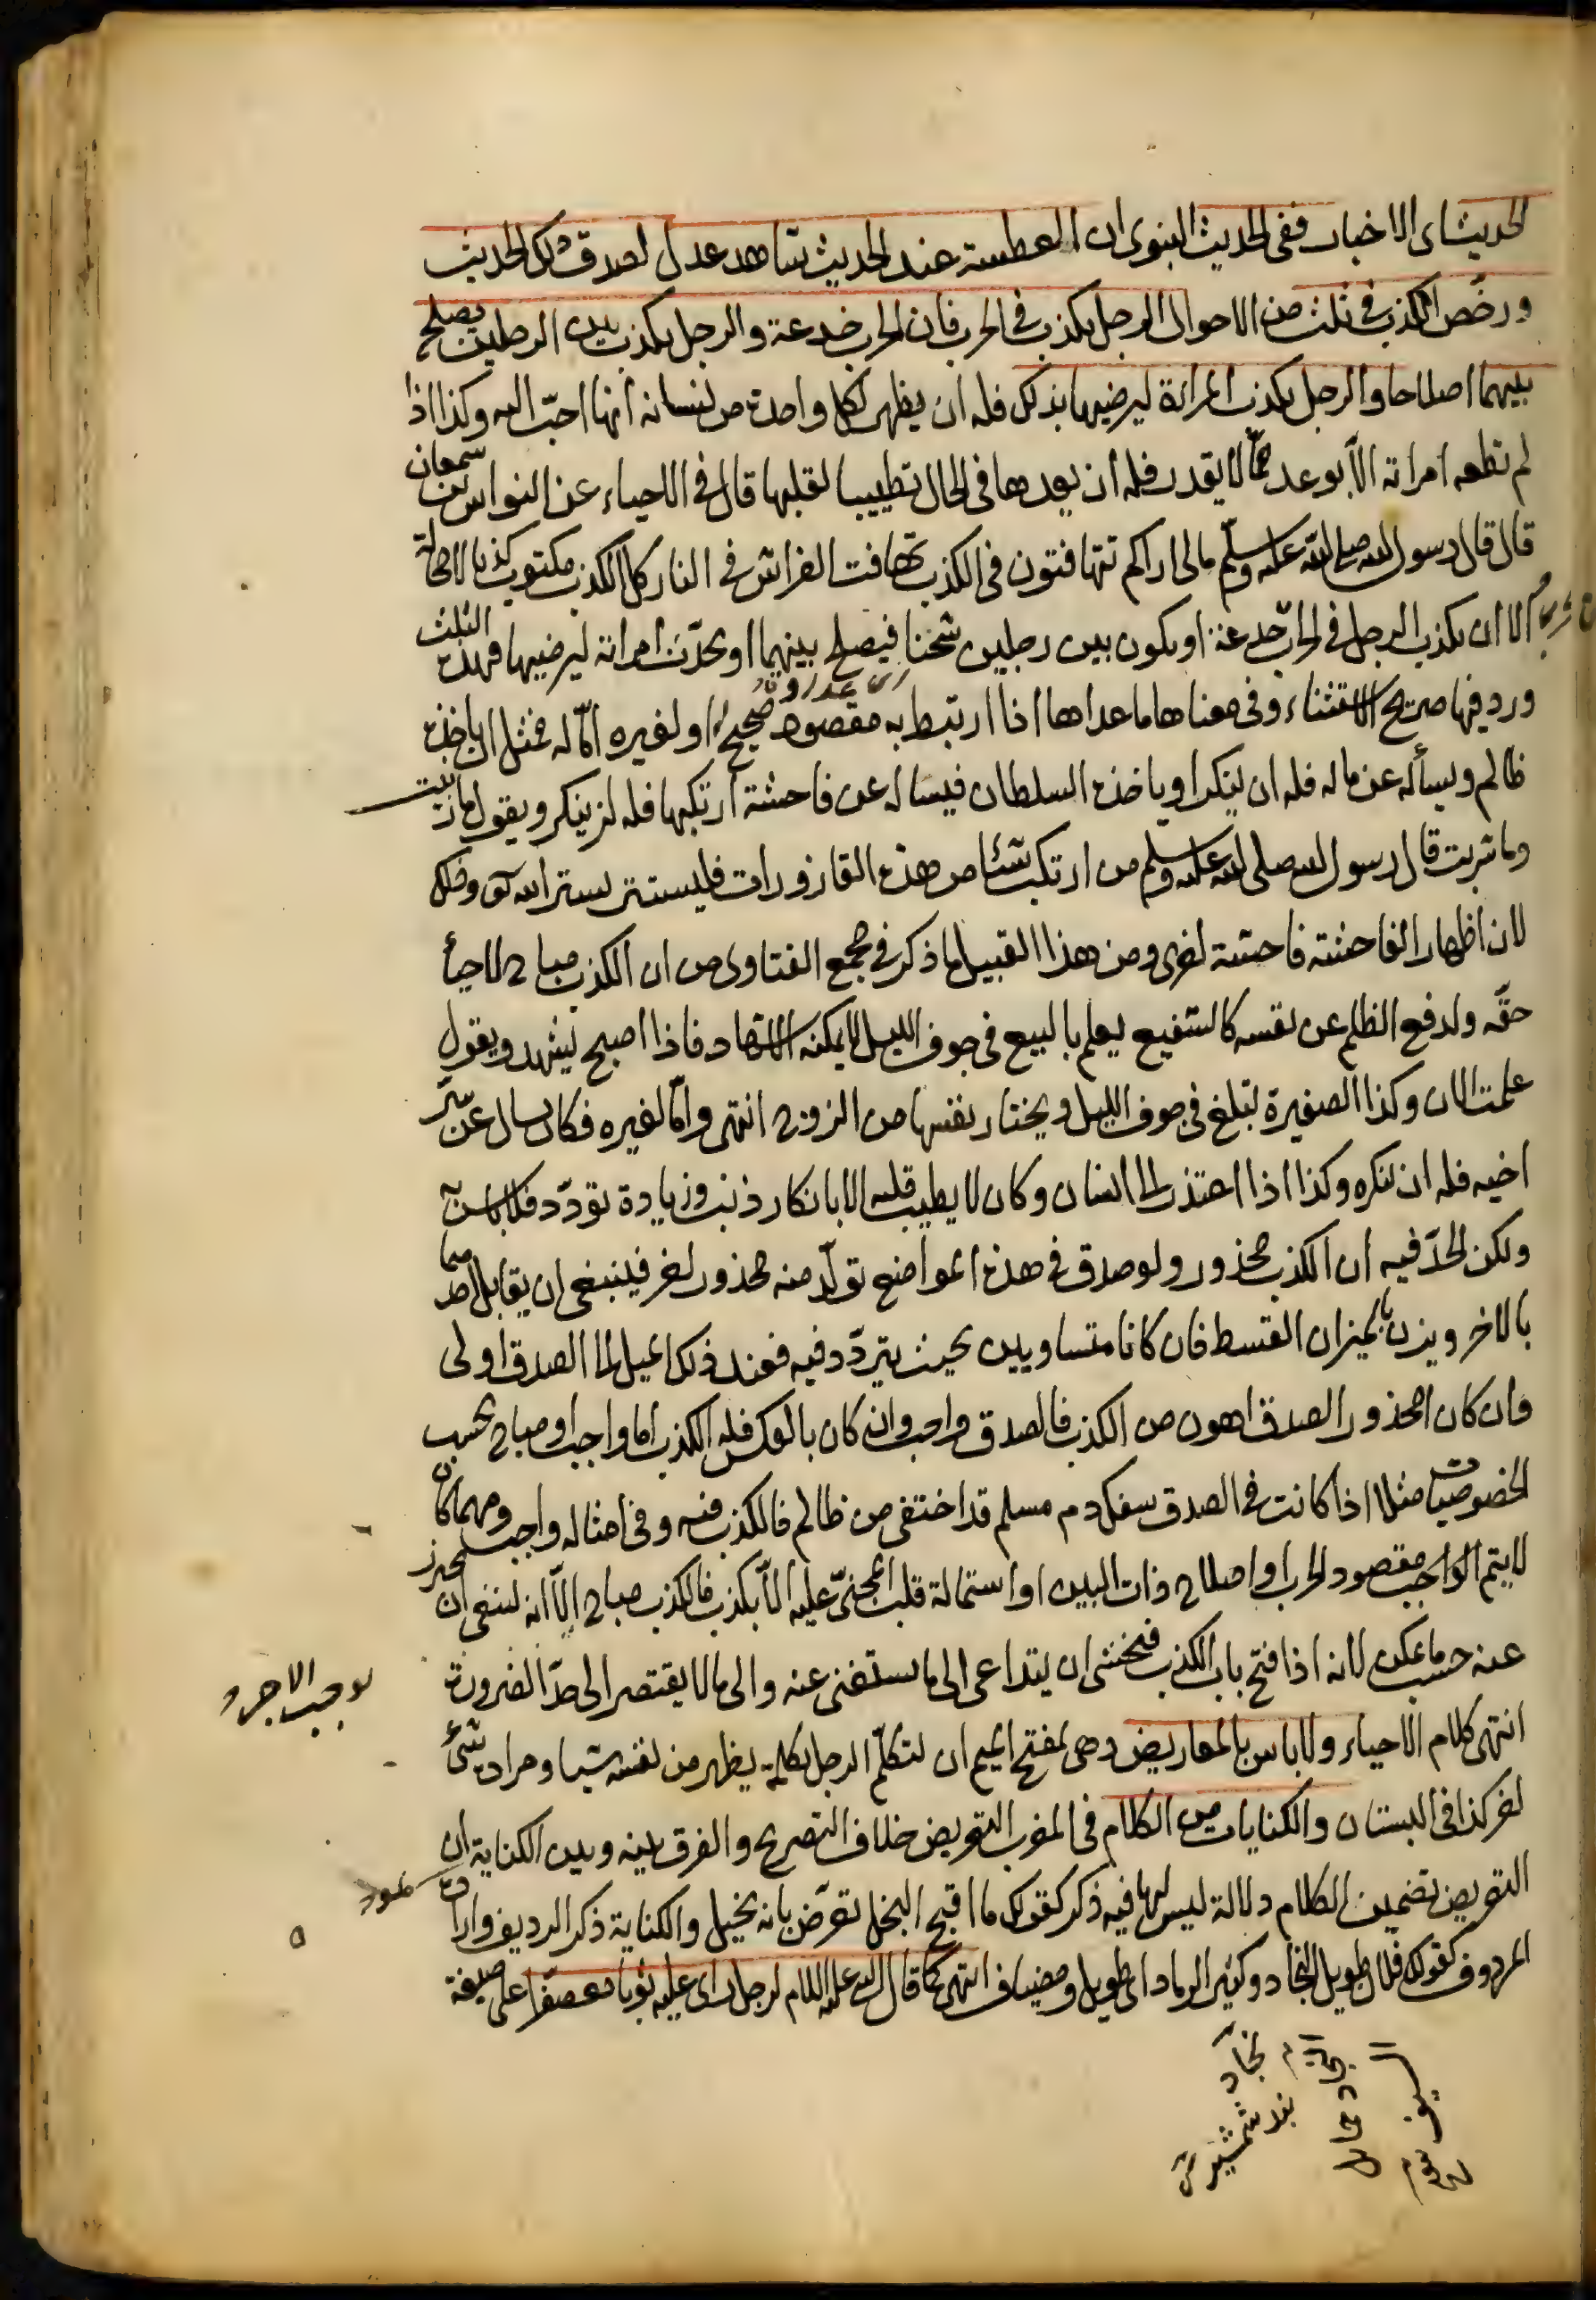 الحديث اى الاخبار ففى الحديث النبوى ان العطسة عند الحديث شاهد عدل لصدق ذلك الحديث
ورخص الكذب فى ثلث من الاحوال الرجل يكذب فى الحرب فان الحرب خدعة والرجل يكذب بين الرجلين يصلح
بينهما اصلاحا والرجل يكذب المرأة ليرضيها بذلك فله ان يظهر لكل واحدة من نسائه انها احب اليه وكذا اذا
لم تطعه امرأته الا بوعد ما لا يقدر فله ان يعدها فى الحال تطييبا لقلبها قال فى الاحياء عن النواس بن سمعان
قال قال رسول الله صلى الله عليه وسلم مالى اراكم تتهافتون فى الكذب تهافت الفراش فى النار كل الكذب مكتوب كذبا لا محالة
الا ان يكذب الرجل فى الحرب خدعة او يكون بين رجلين شحنا فيصلح بينهما او يحدث امرأته ليرضيها فهذه الثلث
ورد فيها صريح الاستثناء وفى معناها ما عداها اذا ارتبط به مقصود صحيح له او لغيره اما له فمثل ان ياخذه
ظالم ويسأله عن ماله فله ان ينكر او ياخذه السلطان فيسأله عن فاحشة ارتكبها فله ان ينكر ويقول ما زنيت
وما شربت قال رسول الله صلى الله عليه وسلم من ارتكب شيئا من هذه القاذورات فليستتر بستر الله تعالى وذلك
لان اظهار الفاحشة فاحشة اخرى ومن هذا القبيل ما ذكر فى مجمع الفتاوى من ان الكذب مباح لاحياء
حقه ولدفع الظلم عن نفسه كالشفيع يعلم بالبيع فى جوف الليل لا يمكنه الاشهاد فاذا اصبح يشهد ويقول
علمت الان وكذا الصغيرة تبلغ فى جوف الليل ويختار نفسها من الزوج انتهى واما لغيره فكان يسال عن سر
اخيه فله ان ينكره وكذا اذا اعتذر الى انسان وكان لا يطيب قلبه الا بانكار ذنب وزيادة تودد فلا باس به
ولكن الحد فيه ان الكذب محذور ولو صدق فى هذه المواضع تولد منه محذور اخر فينبغى ان يقابل احدهما
بالاخر ويزن بالميزان القسط فان كانا متساويين بحيث يتردد فيه فعند ذلك الميل الى الصدق اولى
وان كان المحذور الصدق اهون من الكذب فالصدق واجب وان كان بالعكس فله الكذب اما واجب او مباح بحسب
الخصوصيات مثلا اذا كانت فى الصدق سفك دم مسلم قد اختفى من ظالم فالكذب فيه وفى امثاله واجب ومهما كان
لا يتم الواجب مقصود الحرب او اصلاح ذات البين او استمالة قلب المجنى عليه الا بكذب فالكذب مباح الا انه ينبغى ان يحترز
عنه حسب ما يمكن لانه اذا فتح باب الكذب فيخشى ان يتداعى الى ما يستغنى عنه والى ما لا يقتصر الى حد الضرورة
انتهى كلام الاحياء ولا باس بالمعاريض وهى بفتح الميم ان يتكلم الرجل بكلمة يظهر من نفسه شيا ومراده شئ
اخر كذا فى البستان والكنايات من الكلام فى المغرب التعريض خلاف التصريح والفرق بينه وبين الكناية ان
التعريض تضمين الكلام دلالة ليس لها فيه ذكر كقولك ما اقبح البخل تعرض بانه بخيل والكناية ذكر الرديف وارادة
المردوف كقولك فلان طويل النجاد وكثير الرماد اى طويل ومضياف انتهى كما قال النبى عليه السلام لرجل راى عليه ثوبا معصفرا على صيغة
نجاد
بند شمشير